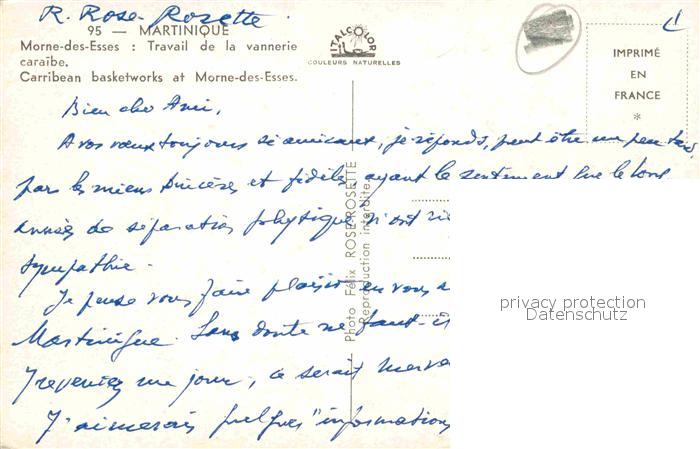 R. Rose-Rosette.
95 — MARTINIQUE
Morne-des-Esses : Travail de la vannerie
caraïbe.
Carribean basketworks at Morne-des-Esses.
ITALCOLOR
COULEURS NATURELLES
IMPRIMÉ
EN
FRANCE
*
Bien cher Ami,
A vos vœux toujours si amicaux, je réponds, peut être un peu tard
par les miens sincères et fidèles ayant le sentiment que le
années de séparation physique n'ont
sympathie.
Je pense vous faire plaisir en vous
Martinique. Sans doute ne faut-il
reveniez un jour, ce serait
J'aimerais quelques "informations
Photo Félix ROSE-ROSETTE
Reproduction interdite
privacy protection
Datenschutz